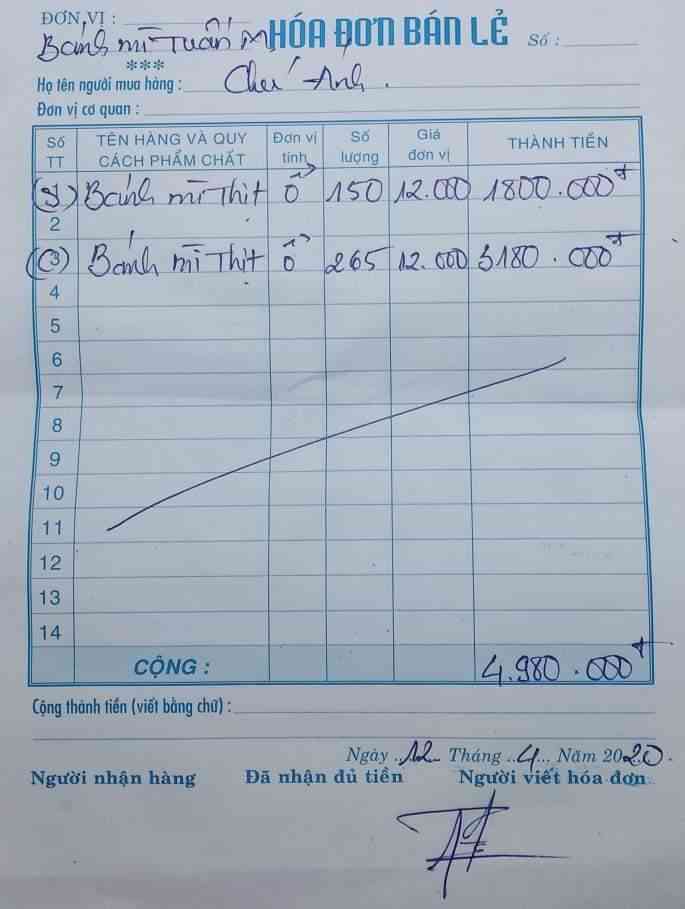 ĐƠN VỊ :
Bánh mì Tuấn M
HÓA ĐƠN BÁN LẺ Số :
***
Họ tên người mua hàng : Chú Ánh .
Đơn vị cơ quan :
Số TT TÊN HÀNG VÀ QUY CÁCH PHẨM CHẤT Đơn vị tính Số lượng Giá đơn vị THÀNH TIỀN
(1) Bánh mì Thịt Ổ 150 12.000 1800.000đ
2
(3) Bánh mì Thịt Ổ 265 12.000 3180.000đ
4
5
6
7
8
9
10
11
12
13
14
CỘNG : 4.980.000đ
Cộng thành tiền (viết bằng chữ) :
Ngày 12 Tháng 4 Năm 2020.
Người nhận hàng Đã nhận đủ tiền Người viết hóa đơn